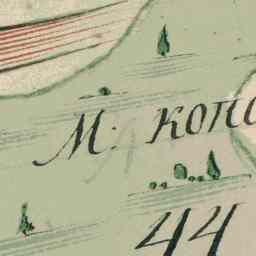 М: копо
44